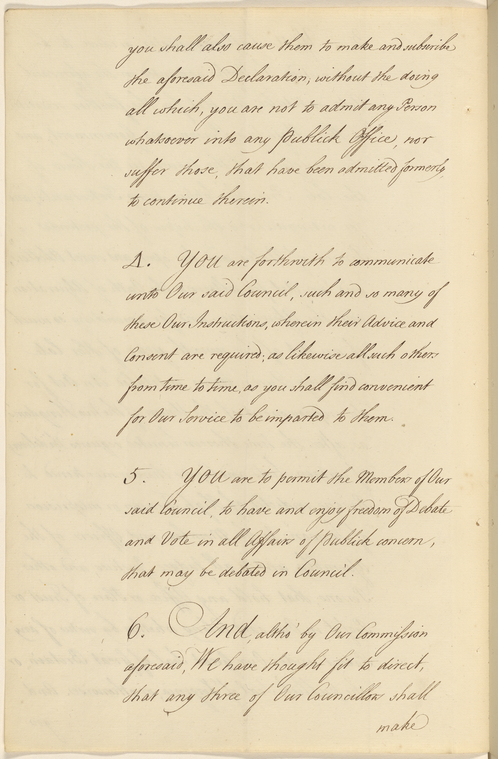 you shall also cause them to make and subscribe
the aforesaid Declaration, without the doing
all which, you are not to admit any Person
whatsoever into any Publick Office, nor
suffer those, that have been admitted formerly,
to continue therein.
4. YOU are forthwith to communicate
unto Our said Council, such and so many of
these Our Instructions, wherein their Advice and
Consent are required; as likewise all such others
from time to time, as you shall find convenient
for Our Service to be imparted to them.
5. YOU are to permit the Members of Our
said Council, to have and enjoy freedom of Debate
and Vote in all Affairs of Publick concern,
that may be debated in Council.
6. And, altho' by Our Commission
aforesaid, We have thought fit to direct,
that any three of Our Councillors shall
make